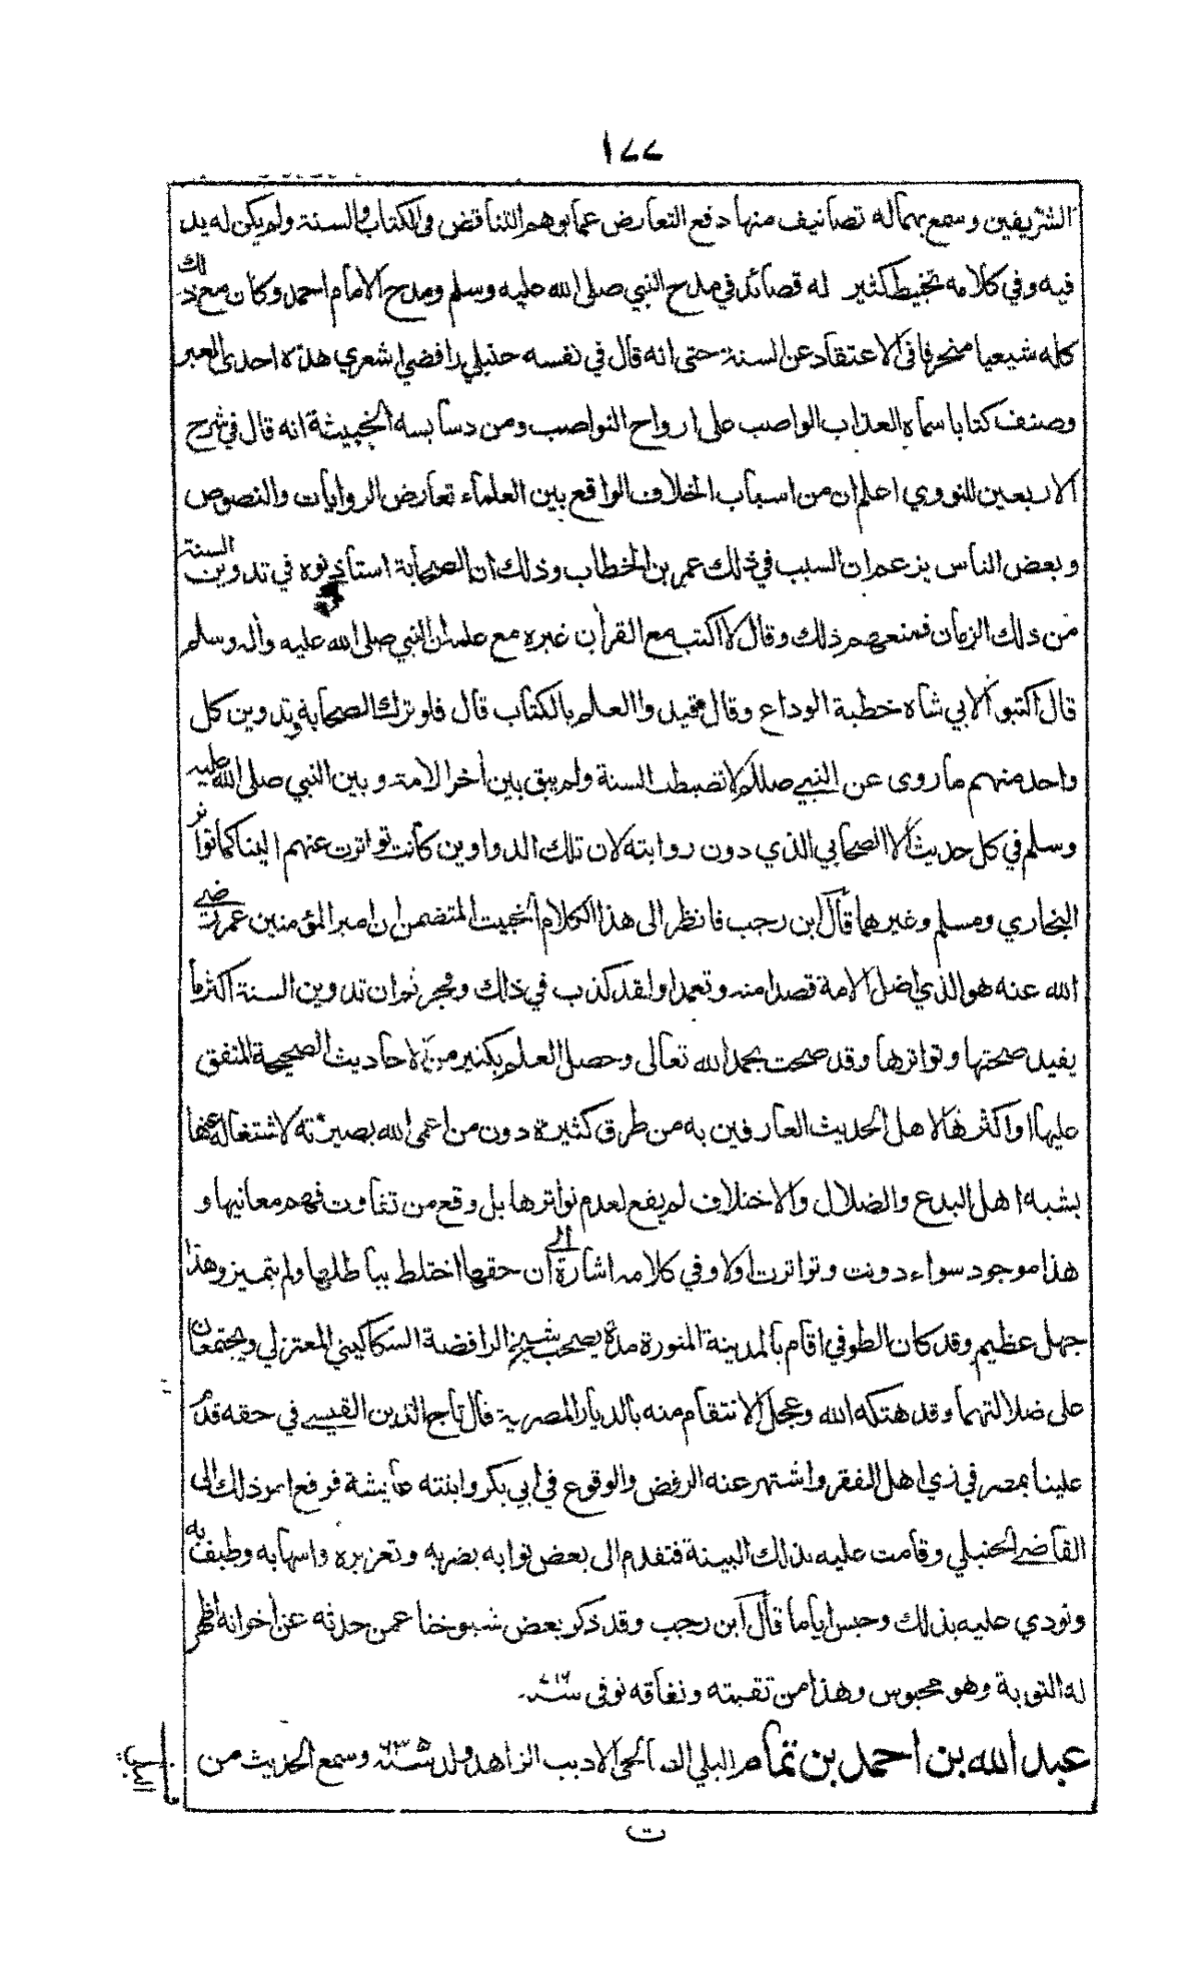 ١٧٧
الشريفين وسمع بهما له تصانيف منها دفع التعارض عما يوهم التناقض في الكتاب والسنة ولم يكن له يد
فيه وفي كلامه تخبيط كثير له قصائد في مدح النبي صلى الله عليه وسلم ومدح الامام احمد وكان مع ذلك
كله شيعيا منحرفا في الاعتقاد عن السنة حتى انه قال في نفسه حنبلي رافضي اشعري هذه احدى العبر
وصنف كتابا سماه العذاب الواصب على ارواح النواصب ومن دسايسه الخبيثة انه قال في شرح
الاربعين للنووي اعلم ان من اسباب الخلاف الواقع بين العلماء تعارض الروايات والنصوص
وبعض الناس يزعم ان السبب في ذلك عمر بن الخطاب وذلك ان الصحابة استاذنوه في تدوين السنة
من ذلك الزمان فمنعهم ذلك وقال لا اكتب مع القرآن غيره مع علمه ان النبي صلى الله عليه وآله وسلم
قال اكتبوا لابي شاه خطبة الوداع وقال قيدوا العلم بالكتاب قال فلو ترك الصحابة وتدوين كل
واحد منهم ما روى عن النبي صللم لانضبطت السنة ولم يبق بين آخر الامة وبين النبي صلى الله عليه
وسلم في كل حديث الا الصحابي الذي دون روايته لان تلك الدواوين كانت تواترت عنهم الينا كما تواتر
البخاري ومسلم وغيرهما قال ابن رجب فانظر الى هذا الكلام الخبيث المتضمن ان امير المؤمنين عمر رضي
الله عنه هو الذي اضل الامة قصدا منه وتعمدا ولقد كذب في ذلك وفجر ثم ان تدوين السنة اكثر ما
يفيد صحتها وتواترها وقد صحت بحمد الله تعالى وحصل العلم بكثير من الاحاديث الصحيحة المتفق
عليها او اكثرها لاهل الحديث العارفين به من طرق كثيرة دون من اعمى الله بصيرته لاشتغاله عنها
بشبه اهل البدع والضلال والاختلاف لم يقع لعدم تواترها بل وقع من تفاوت فهم معانيها و
هذا موجود سواء دونت وتواترت اولا وفي كلامه اشارة الى ان حقها اختلط بباطلها ولم يتميز وهذا
جهل عظيم وقد كان الطوفي اقام بالمدينة المنورة مدة يصحب شيخ الرافضة السكاكيني المعتزلي ويجتمعان
على ضلالتهما وقد هتكه الله وعجل الانتقام منه بالديار المصرية قال تاج الدين القيسي في حقه قدم
علينا بمصر في زي اهل الفقر واشتهر عنه الرفض والوقوع في ابي بكر وابنته عايشة فرفع امر ذلك الى
القاضي الحنبلي وقامت عليه بذلك البينة فتقدم الى بعض نوابه بضربه وتعزيره واشهابه وطيف به
ونودي عليه بذلك وحبس اياما قال ابن رجب وقد ذكر بعض شيوخنا عمن حدثه عن اخوانه اظهر
له التوبة وهو محبوس وهذا من تقيته ونفاقه توفى سنة ٧١٦
عبد الله بن احمد بن تمام البلي الصالحي الاديب الزاهد ولد سنة ٦٣٥ وسمع الحديث من
ت